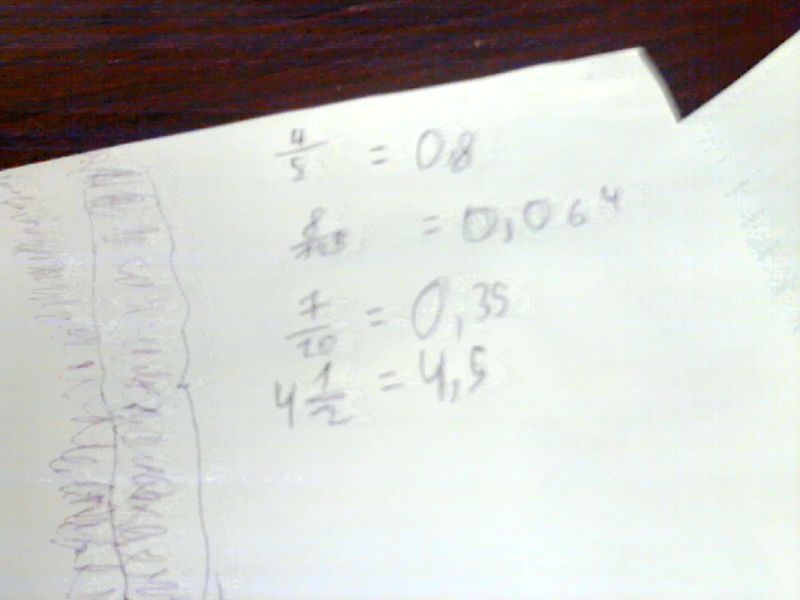 4/5 = 0,8
= 0,064
7/20 = 0,35
4 1/2 = 4,5